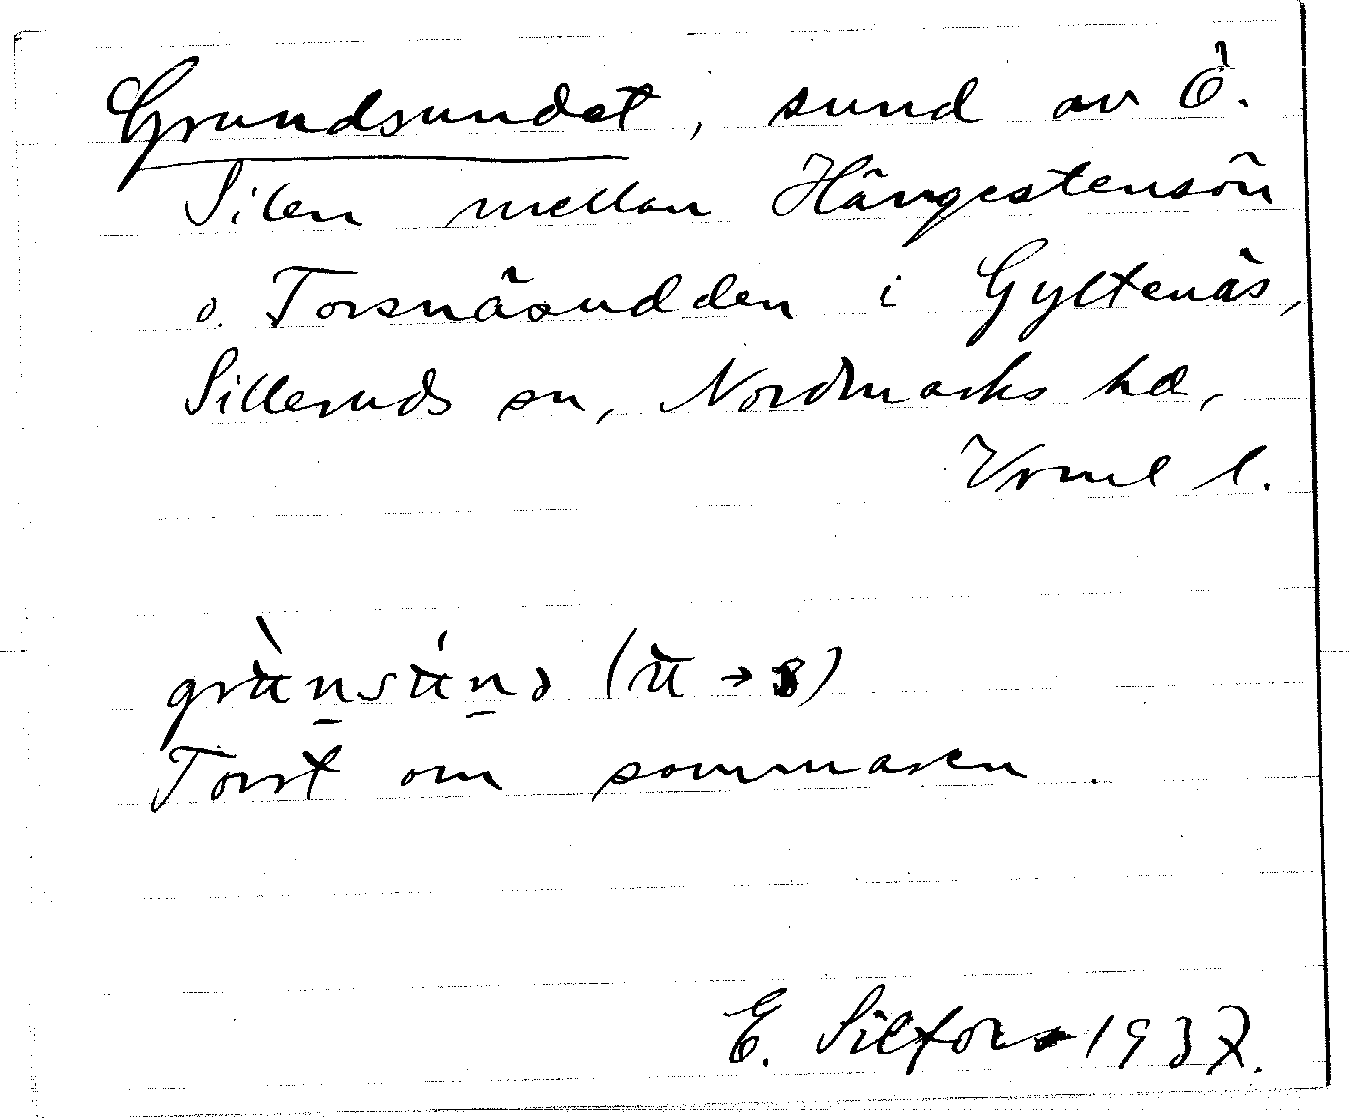 Grundsundet, sund av Ö.
Silen mellan Hängestensön
o. Torsnäsudden i Gyltenäs,
Silleruds sn, Nordmarks hd,
Vrml l.
(
Torrt om sommaren.
E. Silfors 1937.